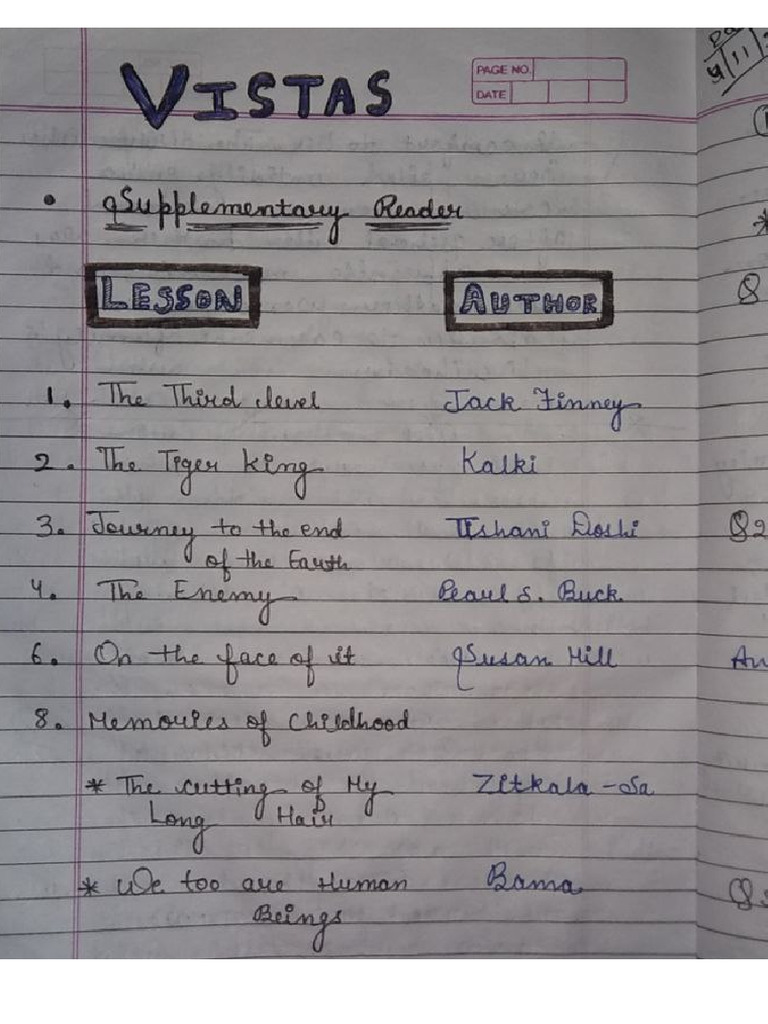 VISTAS
PAGE NO.
DATE
• Supplementary Reader
LESSON AUTHOR
1. The Third level Jack Finney
2. The Tiger king Kalki
3. Journey to the end Tishani Doshi
of the Earth
4. The Enemy Pearl S. Buck.
6. On the face of it Susan Hill
8. Memories of Childhood
* The cutting of My Zitkala-Sa
Long Hair
* We too are Human Bama
Beings
Q
Q2
An